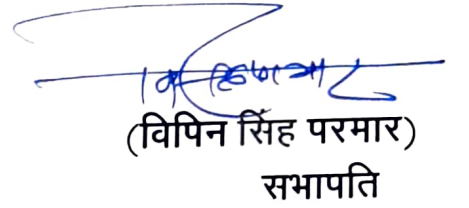 (विपिन सिंह परमार)
सभापति